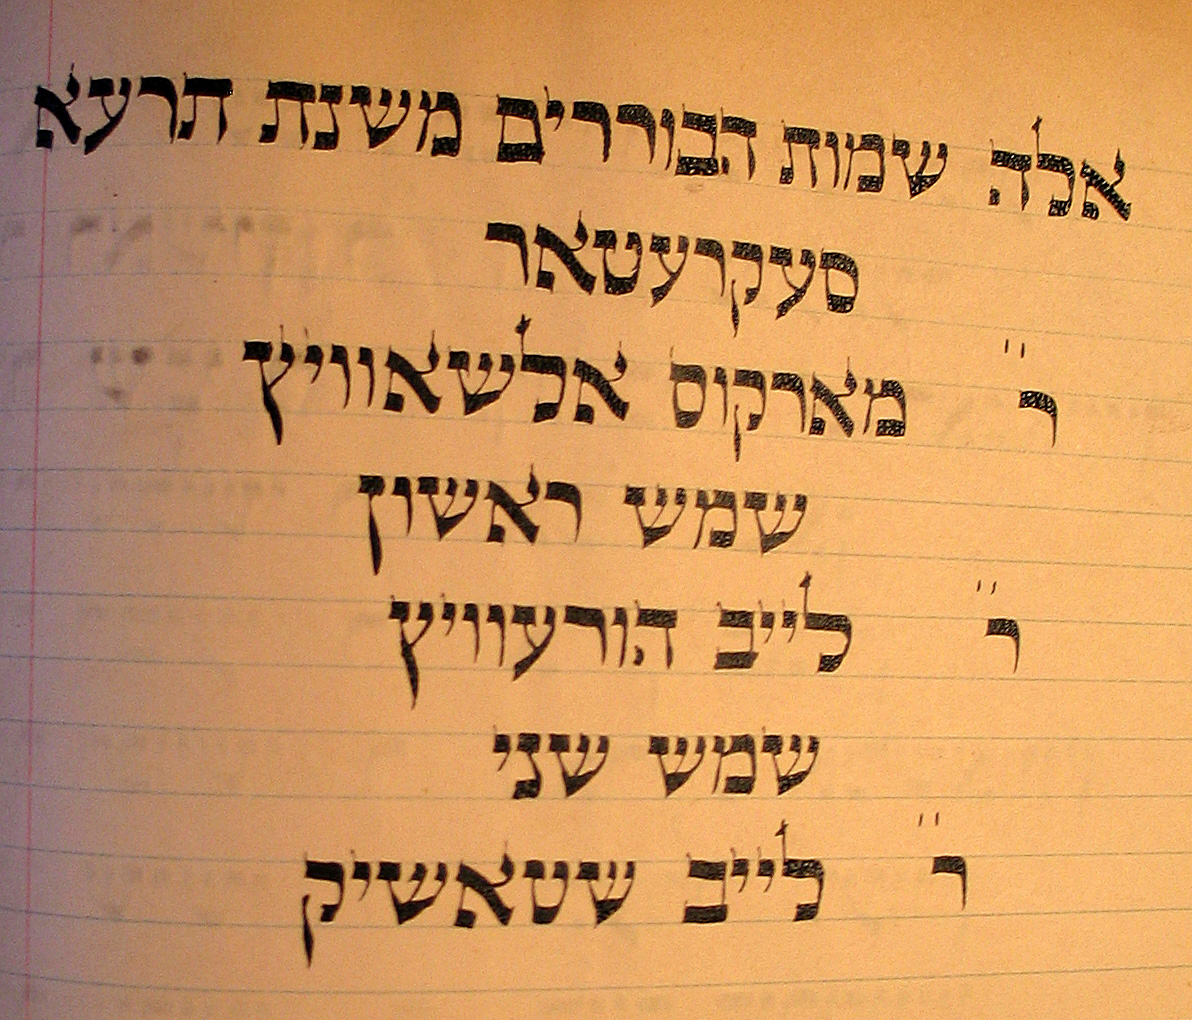 אלה שמות הבוררים משנת תרעא
סעקרעטאר
ר״ מארקוס אלשאוויץ
שמש ראשון
ר״ לייב הורעוויץ
שמש שני
ר״ לייב שטאשיק